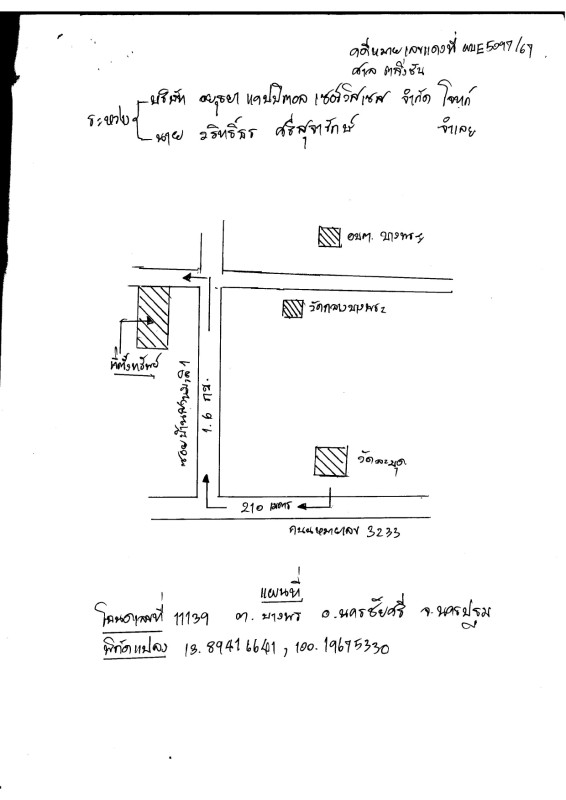 คดีหมายเลขแดงที่ ผบE5097/67
ศาล ตลิ่งชัน
ระหว่าง
บริษัท อยุธยา แคปปิตอล เซอร์วิสเซส จำกัด โจทก์
นาย วริทธิ์ธร ศรีสุจารักษ์ จำเลย
อบต. บางพระ
วัดกลางบางพระ
ที่ตั้งทรัพย์
1.6 กม.
วัดละมุด
210 เมตร
ถนนหมายเลข 3233
แผนที่
โฉนดเลขที่ 11139 ต. บางพระ อ.นครชัยศรี จ.นครปฐม
พิกัดแปลง 13.89416641, 100.19675330